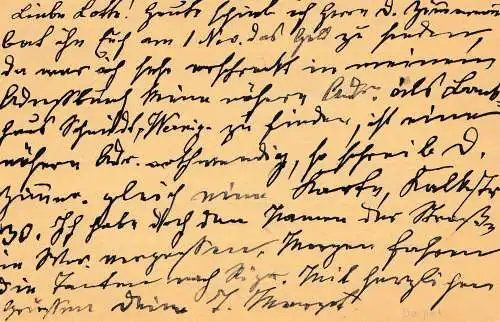 Liebe Lotte! Heute schrieb ich Herrn D. Zimmermann
bat ihn Euch am 1 Nov. das Geld zu senden
da war ich sehr erschreckt in meinem
Adressbuch keine nähere Adr. als Bank
haus Schmidt, zu finden, ist eine
nähere Adr. nothwendig, so schreib D.
Zimmer. gleich eine Karte, Kalkstr
30. Ich habe doch den Namen der Straße
in vergessen, Morgen fahren
die Tanten nach Riga. Mit herzlichen
Grüssen Deine J.